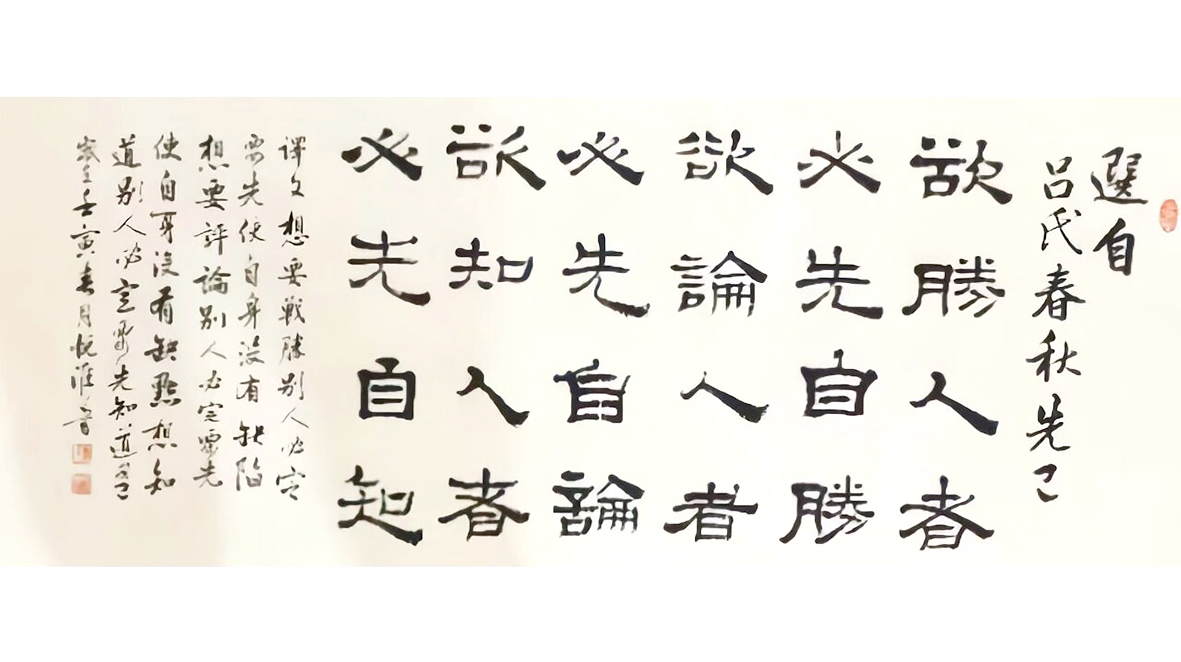 選自
吕氏春秋先己
欲勝人者
必先自勝
欲論人者
必先自論
欲知人者
必先自知
譯文想要戰勝别人必定
要先使自身没有缺陷
想要評論别人必定要先
使自身没有缺點想知
道别人必定要先知道自己
歲在壬寅春月